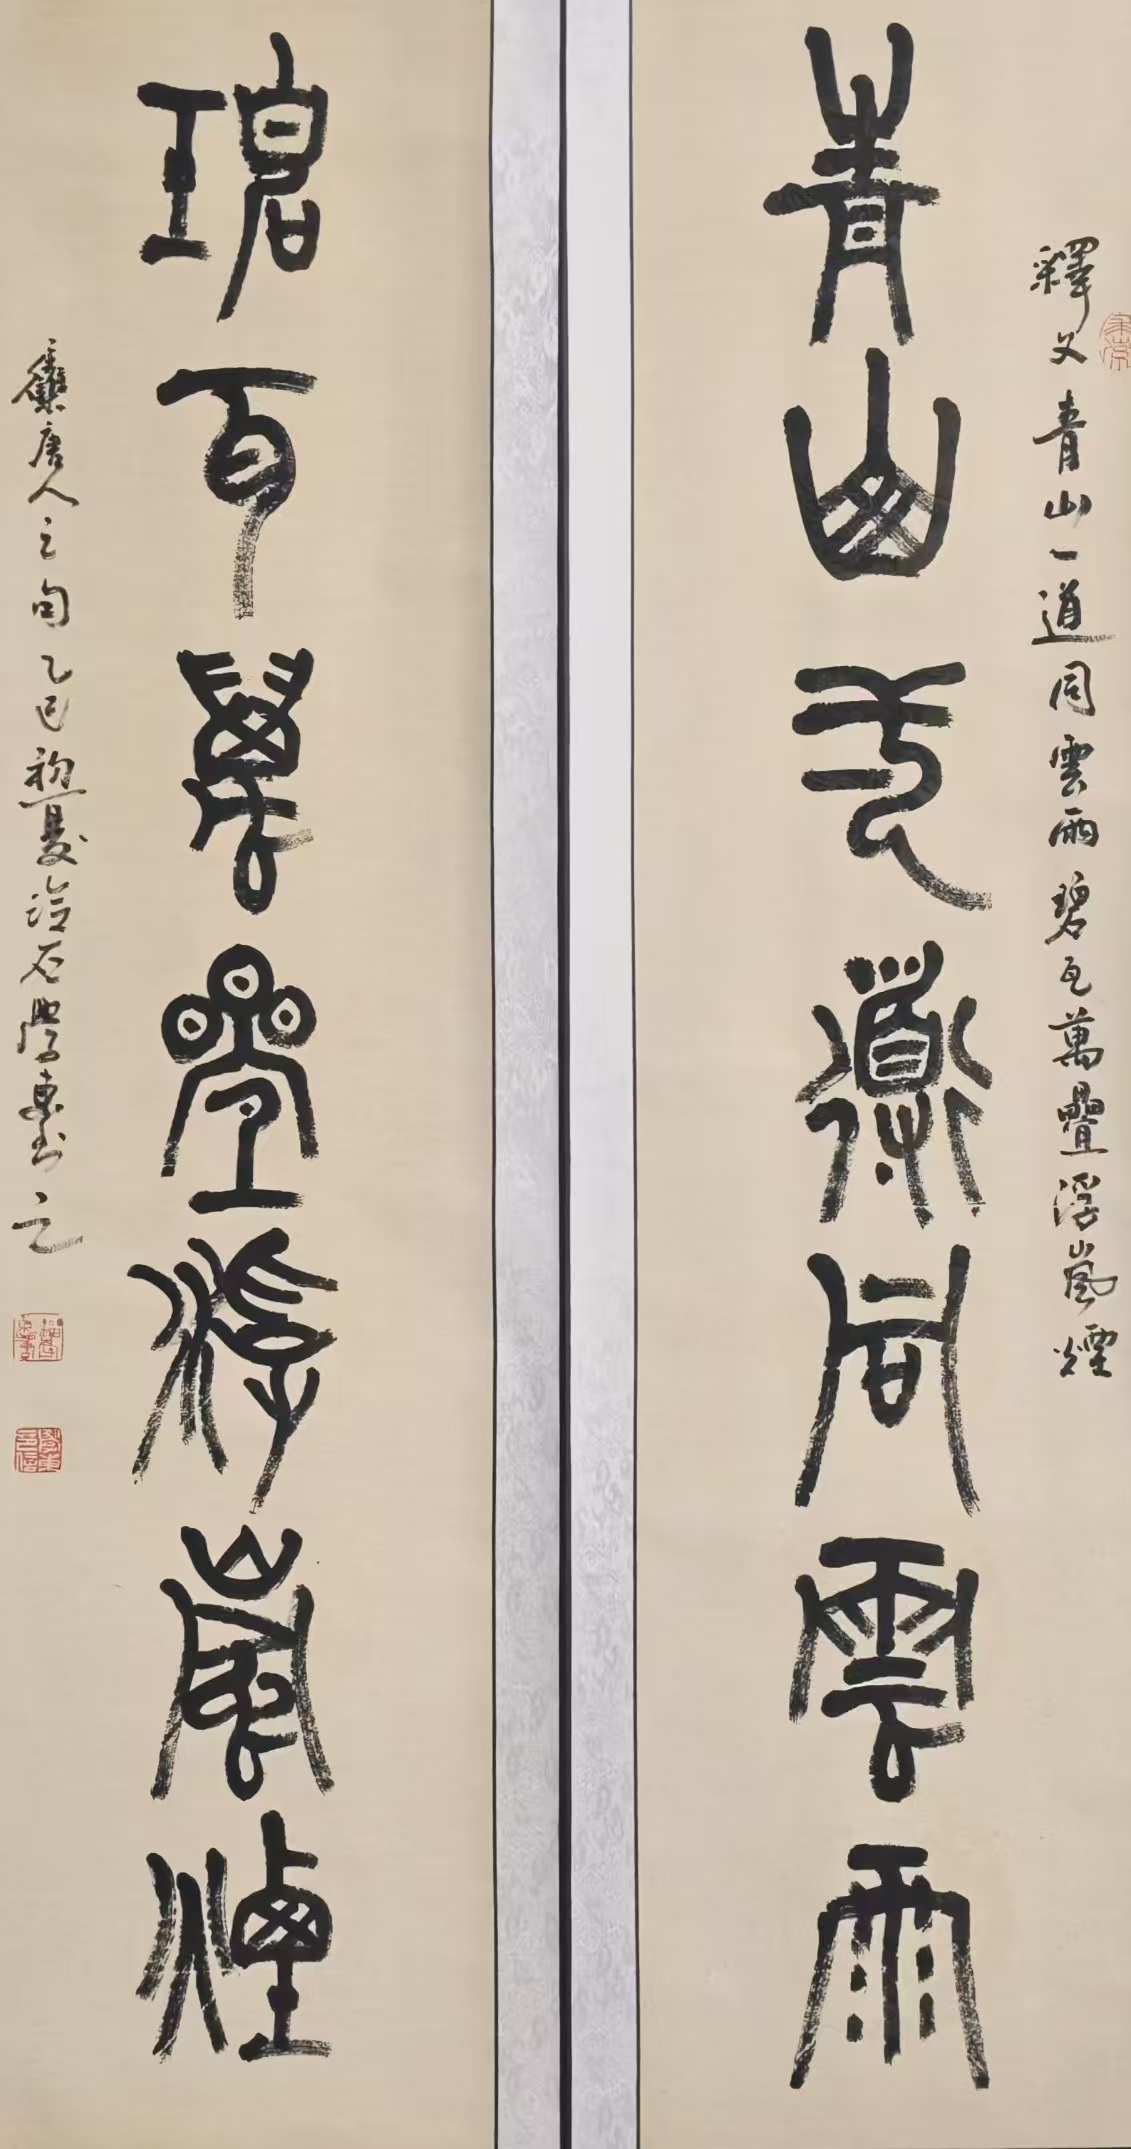 青山一道同雲雨
碧瓦萬疊浮嵐煙
釋文青山一道同雲雨碧瓦萬疊浮嵐煙
集唐人之句乙巳初夏冶石學東書之